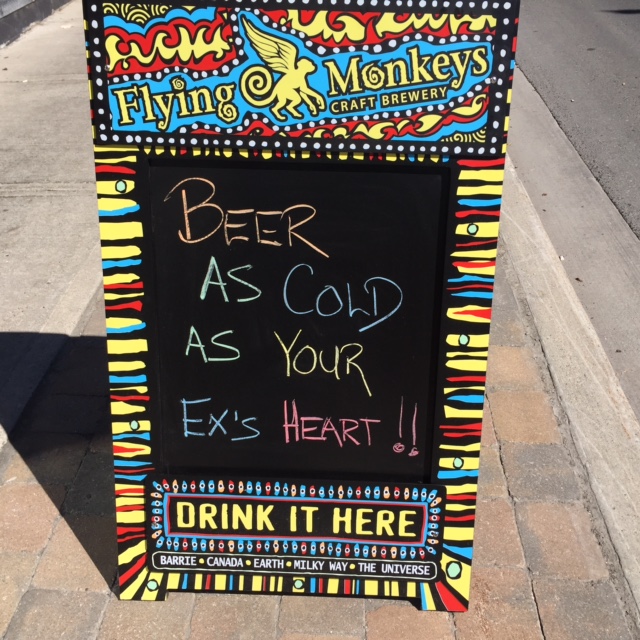 Flying Monkeys
CRAFT BREWERY
BEER
AS COLD
AS YOUR
EX'S HEART!!
DRINK IT HERE
BARRIE • CANADA • EARTH • MILKY WAY • THE UNIVERSE